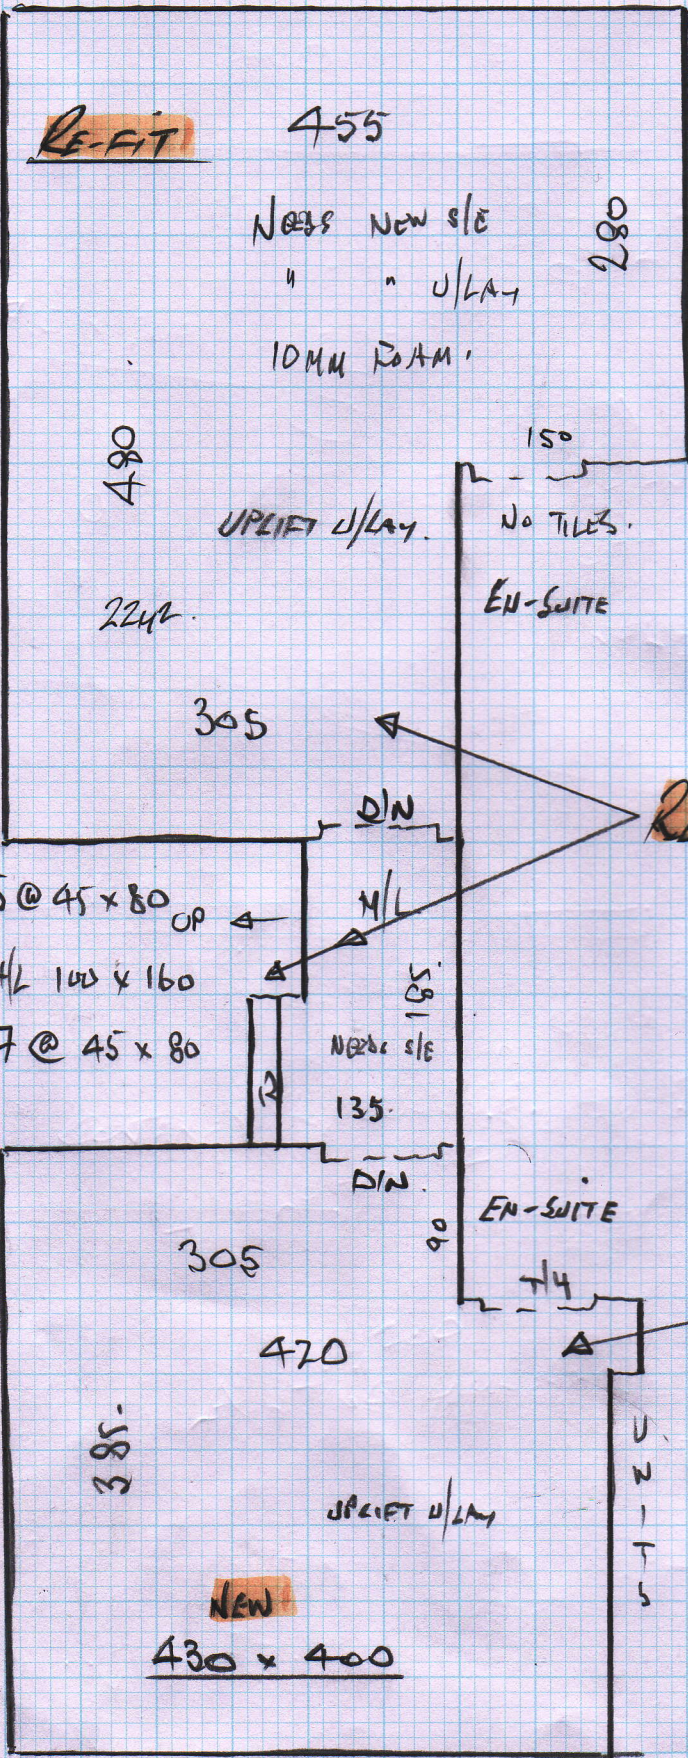 RE-FIT
455
280
NEEDS NEW S/E
" " U/LAY
10MM FOAM.
480
150
UPLIFT U/LAY.
NO TILES.
EN-SUITE
305
D/N
@ 45 x 80
UP
M/L
/L 100 x 160
195
7 @ 45 x 80
NEEDS S/E
135.
D/N.
90
EN-SUITE
305
T/H
420
385.
UNITS
UPLIFT U/LAY
NEW
430 x 400